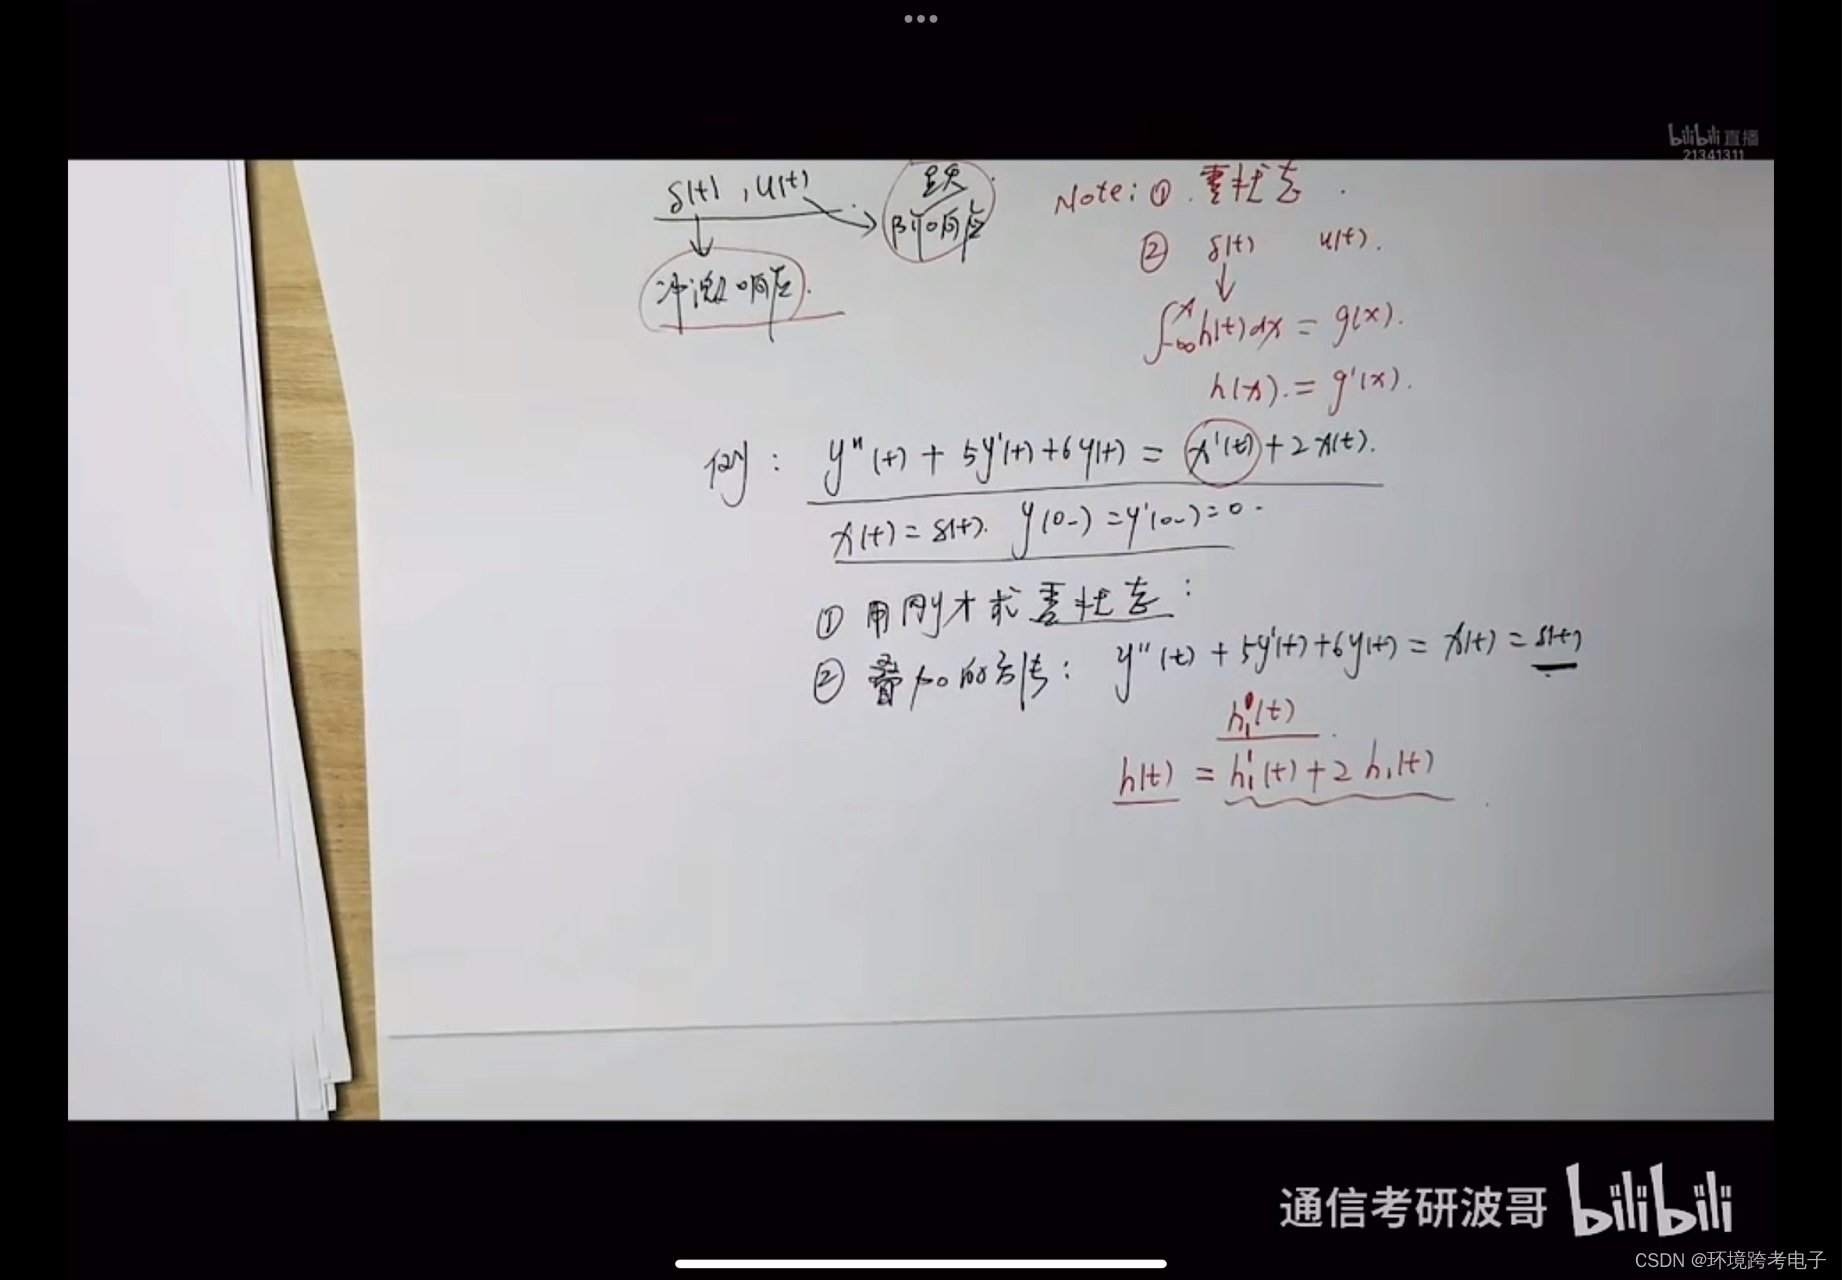 bilibili 直播
21341311
δ(t), u(t)
阶跃响应
冲激响应.
Note: ① 零状态
② δ(t) u(t).
∫_{-∞}^{x} h(t)dx = g(x).
h(x). = g'(x).
例: y''(t) + 5y'(t) + 6y(t) = x'(t) + 2x(t).
x(t) = δ(t). y(0-) = y'(0-) = 0.
① 用刚才求零状态:
② 叠加的方法: y''(t) + 5y'(t) + 6y(t) = x(t) = δ(t)
h₁(t)
h(t) = h₁'(t) + 2h₁(t)
通信考研波哥 bilibili
CSDN @环境跨考电子